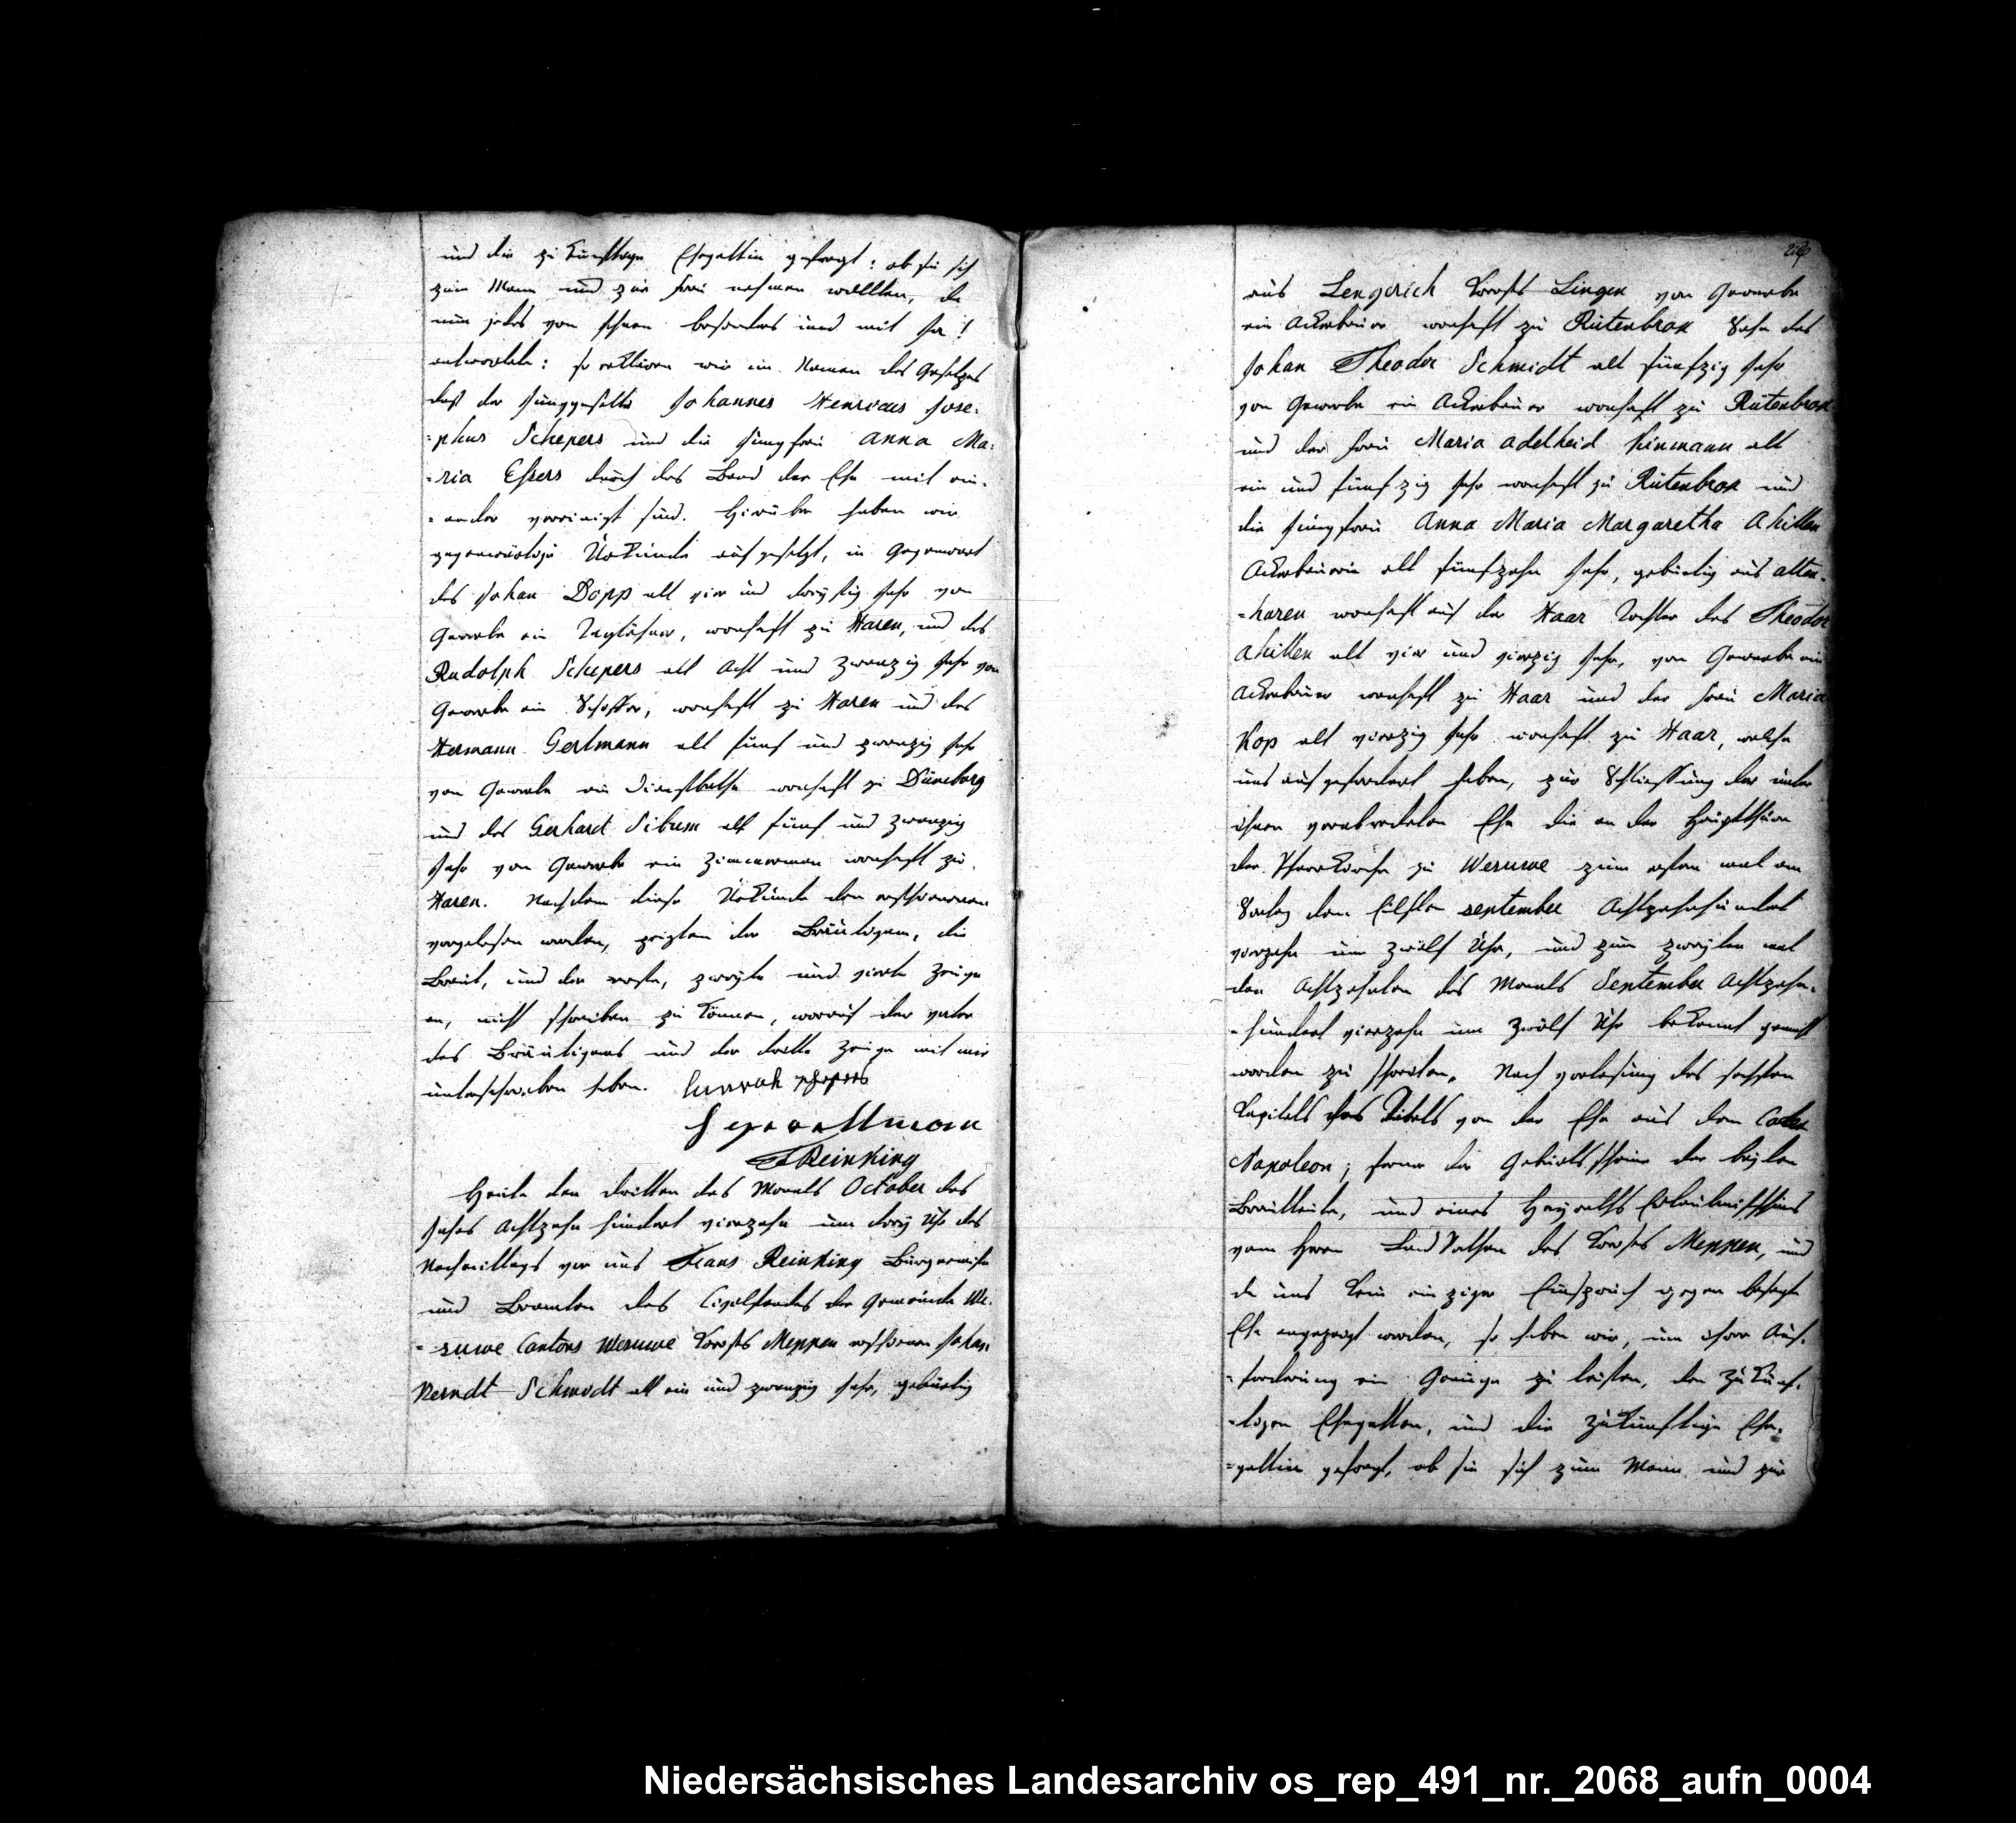 und die zukünftige Ehegattin gefragt: ob sie sich
zum Mann und zur Frau nehmen wollten, da
nun jedes von ihnen besonders und mit Ja!
antwortete: so erklären wir im Namen des Gesetzes
daß der Junggeselle Johannes Henricus Jose:
:phus Schepers und die Jungfrau Anna Ma:
:ria Ehsers durch das Band der Ehe mit ein-
=ander vereinigt sind. Hierüber haben wir
gegenwärtige Urkunde aufgesetzt, in Gegenwart
des Johan Dopp alt vier und dreyßig Jahr von
Gewerbe ein Taglöhner, wonhaft zu Haren, und des
Rudolph Schepers alt acht und zwanzig Jahr von
Gewerbe ein Schiffer, wonhaft zu Haren und des
Hermann Gertmann alt fünf und zwanzig Jahr
von Gewerbe ein Dienstbothe wonhaft zu Düneburg
und des Gerhard Sibum alt fünf und zwanzig
Jahr von Gewerbe ein Zimmerman wonhaft zu
Haren. Nachdem diese Urkunde den erschienenen
vorgelesen worden, zeigten der Bräutigam, die
Braut, und der erste, zweyte und vierte Zeuge
an, nicht schreiben zu können, worauf der vater
des Bräutigams und der dritte Zeuge mit mir
unterschrieben haben. schepers
Reinking
Heute den dritten des Monats October des
Jahrs Achtzehn hundert vierzehn um drey Uhr des
Nachmittags vor uns Frans Reinking Bürgermeister
und Beamten des Civilstandes der Gemeinde We-
=suwe Cantons Wesuwe Kreises Meppen erschienen Johan
Berndt Schmidt alt ein und zwanzig Jahr, gebürtig
aus Lengerich Kreises Lingen von Gewerbe
ein Ackerbauer wonhaft zu Rütenbrok Sohn des
Johan Theodor Schmidt alt fünfzig Jahr
von Gewerbe ein Ackerbauer wonhaft zu Rütenbrok
und der Frau Maria Adelheid Hinmann alt
ein und fünfzig Jahr wonhaft zu Rütenbrok und
die Jungfrau Anna Maria Margaretha Ahillen
Ackerbäuerin alt fünfzehn Jahr, gebürtig aus alten-
=haren wonhaft auf der Haar Tochter des Theodor
Ahillen alt vier und vierzig Jahr, von Gewerbe ein
Ackerbauer wonhaft zu Haar und der Frau Maria
Kop alt vierzig Jahr wonhaft zu Haar, welche
uns aufgefordert haben, zur Schliessung der unter
ihnen verabredeten Ehe die an der Hauptthüre
der Pfarrkirche zu Wesuwe zum ersten mal am
Sontag den Eilften september Achtzehnhundert
vierzehn um zwölf Uhr, und zum zweyten mal
den Achtzehnten des Monats September Achtzehn-
=hundert vierzehn um zwölf Uhr bekannt gemacht
worden zu schreiten. Nach vorlesung des sechsten
Capitels des Titels von der Ehe aus dem Codex
Napoleon; ferner der Geburtsscheine der beyden
Brautleute, und eines Heyraths Erlaubnißscheins
vom Herrn Land Rathen des Kreises Meppen, und
da uns kein einziger Einspruch gegen besagte
Ehe angezeigt worden, so haben wir, um ihrer Auf-
=forderung ein Genüge zu leisten, den Zukünf-
=tigen Ehegatten, und die Zukünftige Ehe-
=gattin gefragt, ob sie sich zum Mann und zur
Niedersächsisches Landesarchiv os_rep_491_nr._2068_aufn_0004